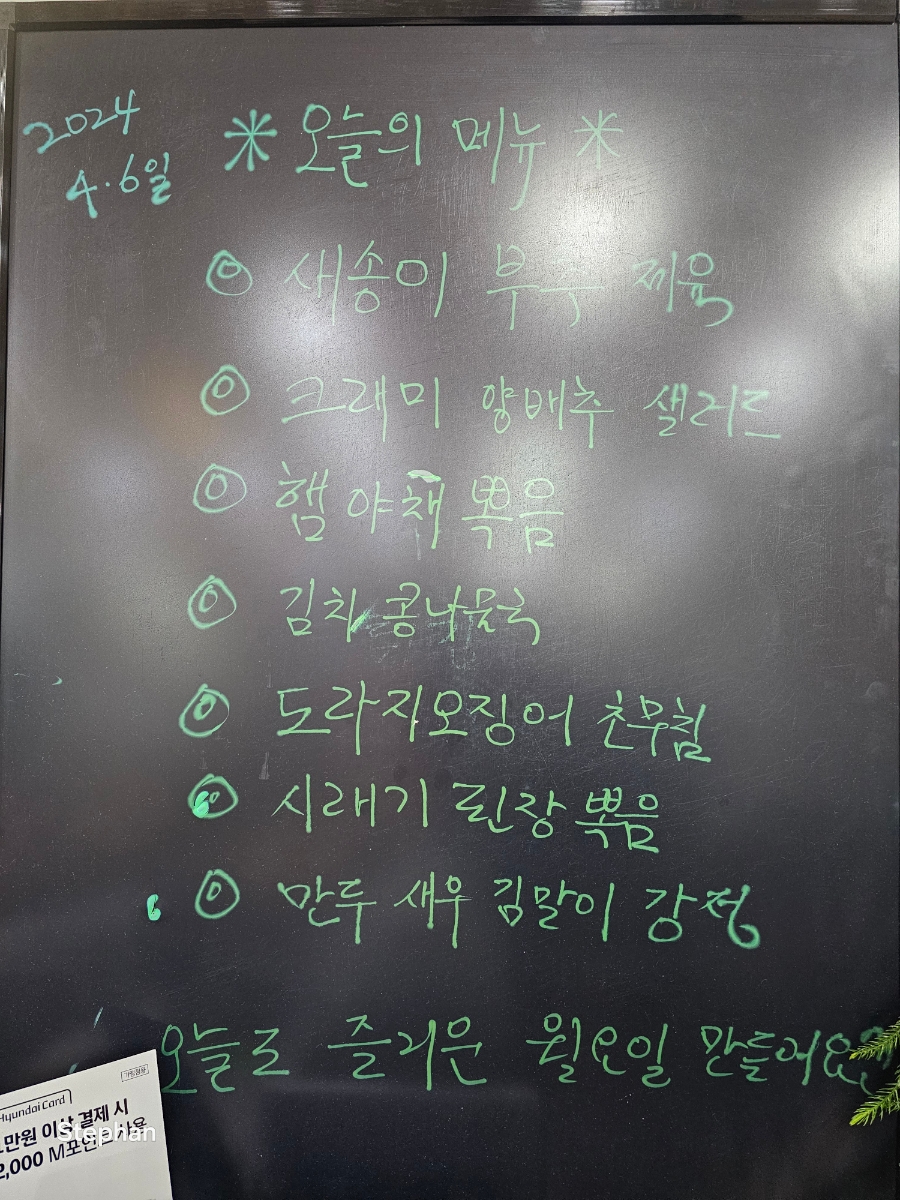 2024
4.6일
* 오늘의 메뉴 *
◎ 새송이 부추 제육
◎ 크래미 양배추 샐러드
◎ 햄 야채 볶음
◎ 김치 콩나물국
◎ 도라지오징어 초무침
◎ 시래기 된장 볶음
◎ 만두 새우 김말이 강정
오늘도 즐거운 월요일 만들어요
HyundaiCard
만원 이상 결제 시
2,000 M포인트 사용
Stephan